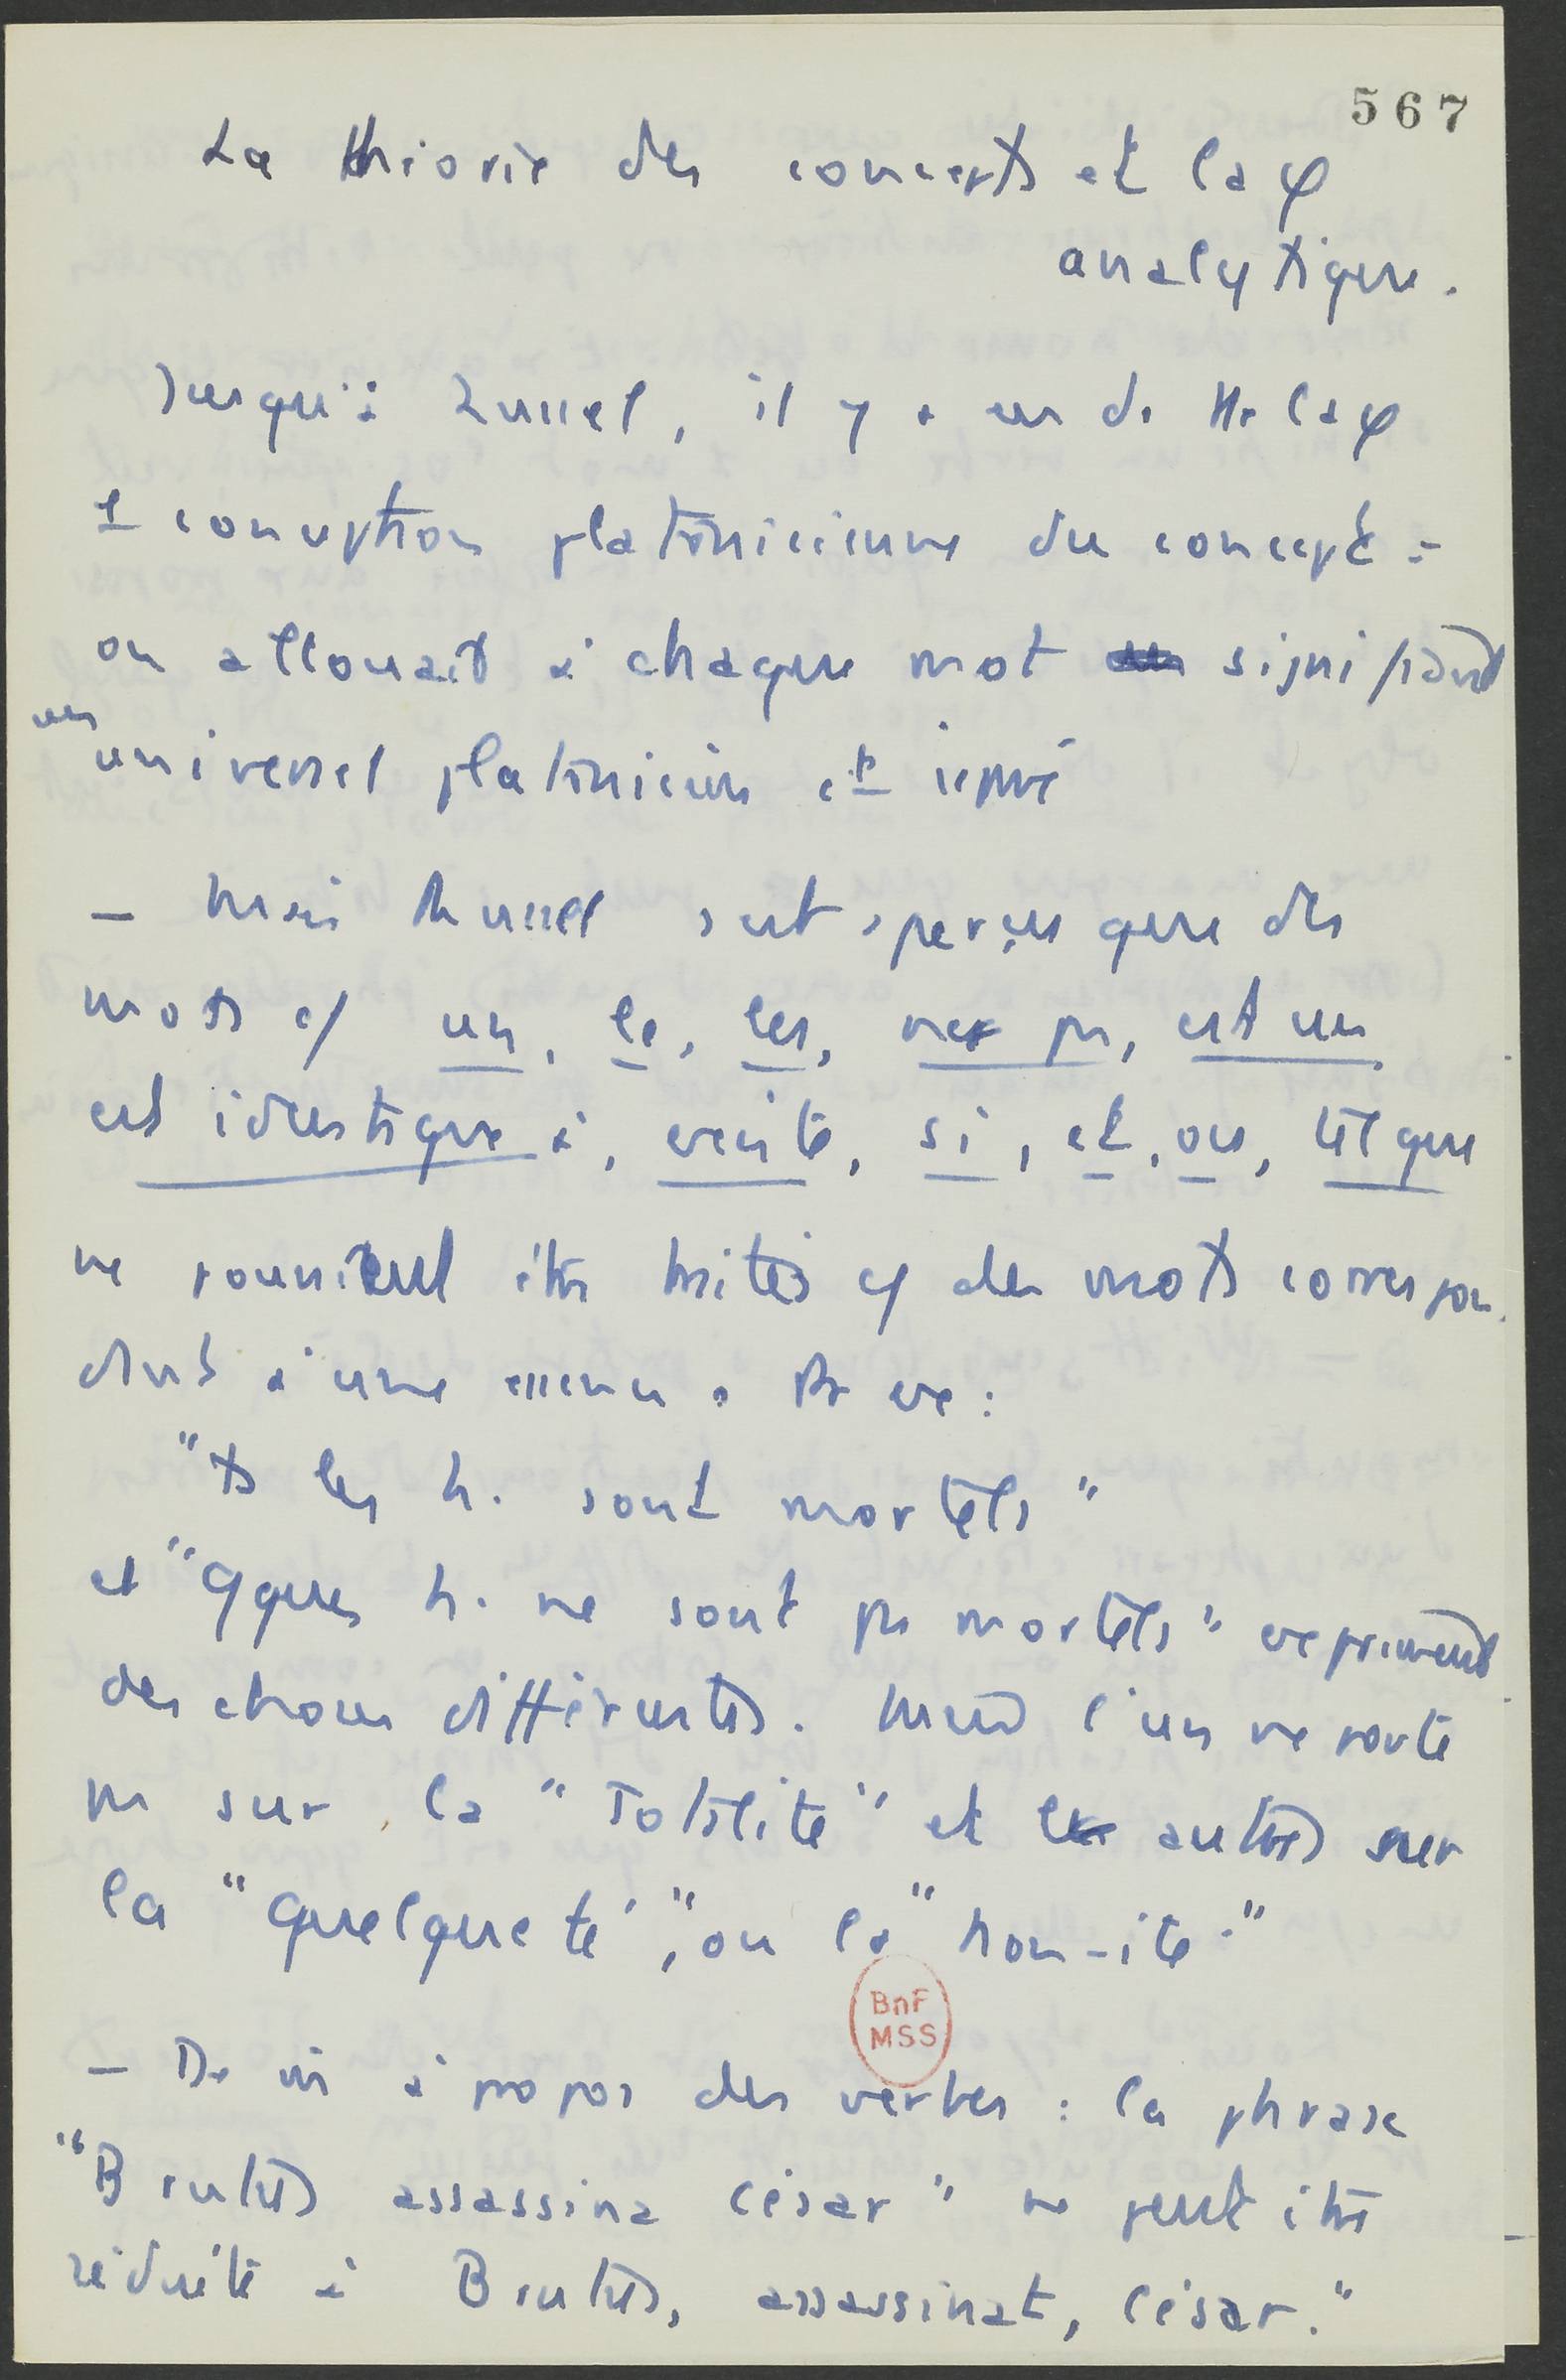 567
La théorie des concepts et la φ
analytique.
Jusqu'à Russel, il y a eu ds tte la φ
1 conception platonicienne du concept :
on allouait à chaque mot signifiant
un universel platonicien
– Mais Russel s'est aperçu que des
mots c/ un, le, les, ne pas, est un
est identique à, vérité, si, et, ou, tel que
ne pouvaient être traités c/ des mots correspon-
dant à une essence :
"ts les h. sont mortels"
et "qques h. ne sont pas mortels" expriment
des choses différentes. Mais l'un ne porte
pas sur la "Totalité" et autres sur
la "quelqueté", ou la "non-ité."
BnF
MSS
– De m à propos des verbes : la phrase
"Brutus assassina César" ne peut être
réduite à Brutus, assassinat, César."